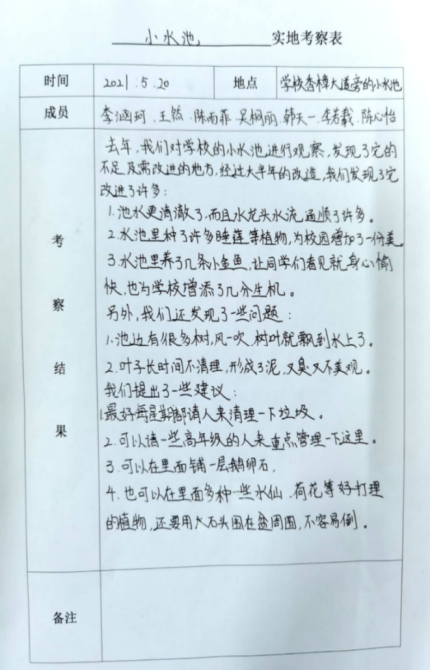 小水池 实地考察表
时间 2021.5.20 地点 学校香樟大道旁的小水池
成员 李涵珂.王然.陈雨菲.吴桐丽.韩天一.李若羲.陈心怡
考察结果
去年,我们对学校的小水池进行观察,发现了它的
不足及需改进的地方,经过大半年的改造,我们发现了它
改进了许多:
1.池水更清澈了,而且水龙头水流通顺了许多。
2.水池里种了许多睡莲等植物,为校园增加了一份美
3.水池里养了几条小鱼,让同学们看见就身心愉
快,也为学校增添了几分生机。
另外,我们还发现了一些问题:
1.池边有很多树,风一吹,树叶就飘到水上了。
2.叶子长时间不清理,形成了泥,又臭又不美观。
我们提出了一些建议:
1.最好每星期都请人来清理一下垃圾。
2.可以请一些高年级的人来重点管理一下这里。
3.可以在里面铺一层鹅卵石.
4.也可以在里面多种一些水仙.荷花等好打理
的植物,还要用大石头围在盆周围,不容易倒。
备注